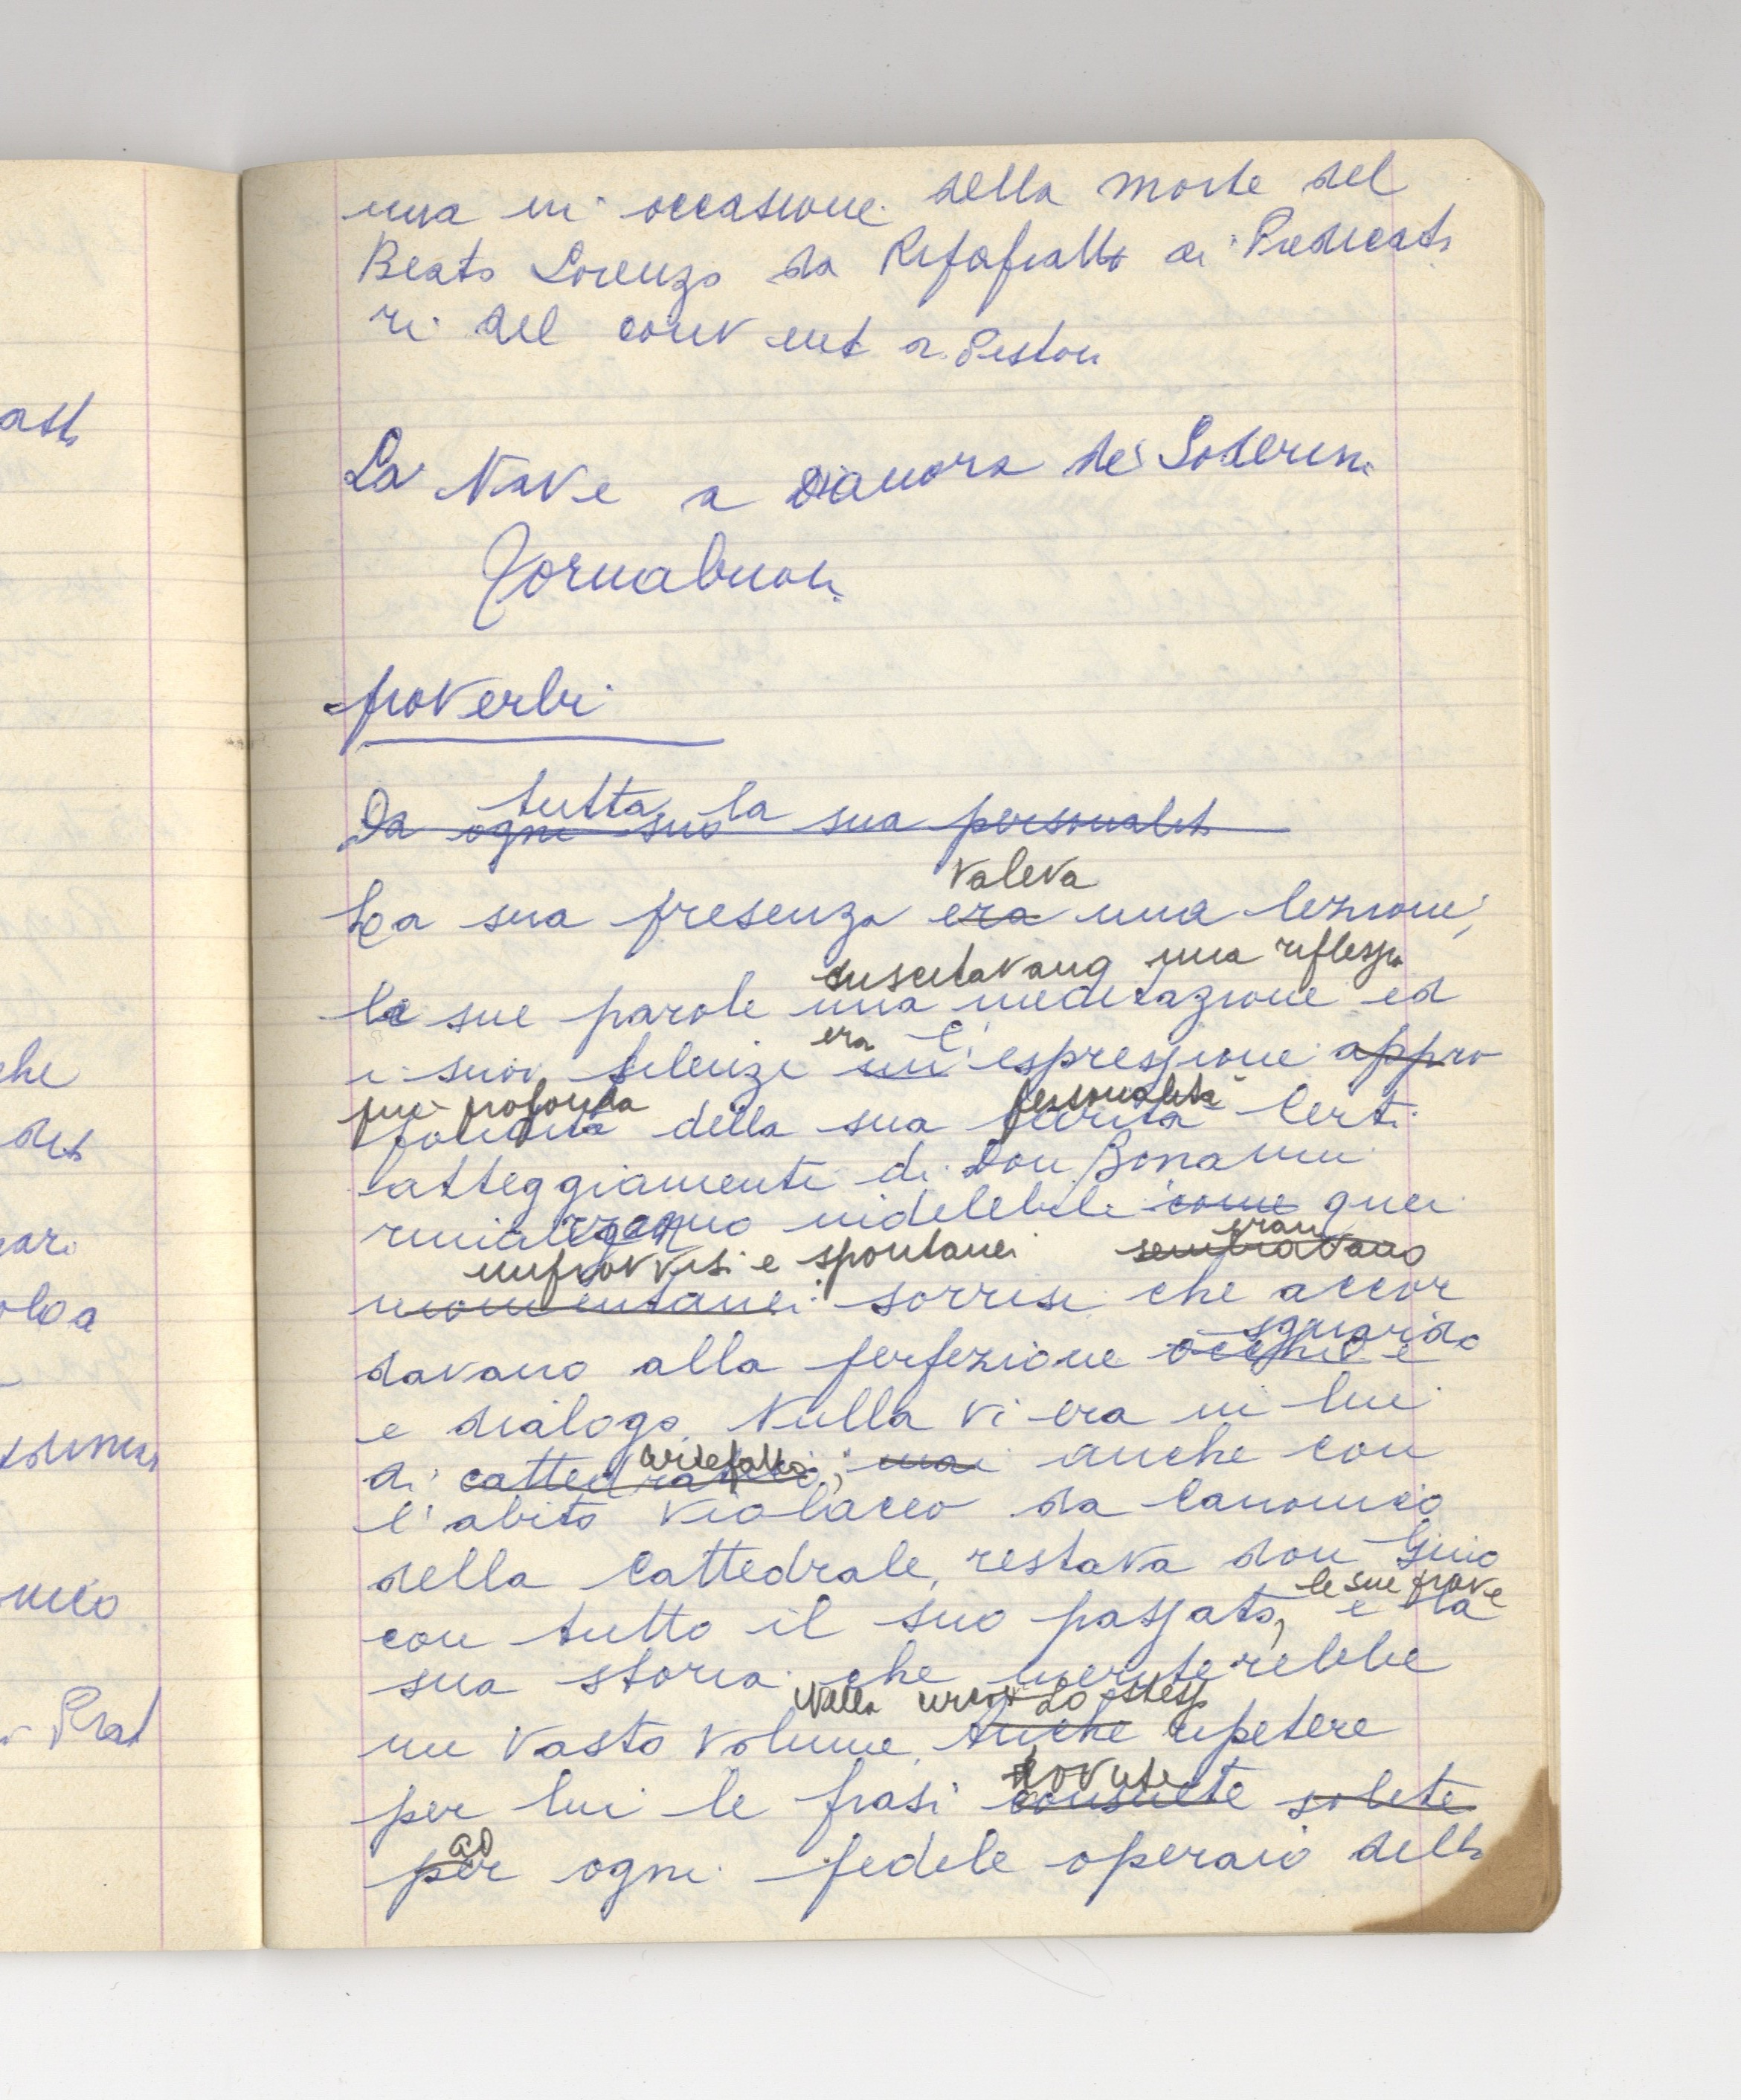 una in occasione della morte del
Beato Lorenzo da Ripafratta ai Predicato
ri del convent a Pistoi
La Nave a Dianora de' Soderini
Tornabuoni
proverbi
tutta la
Da ogni suo sua personalit
valeva
La sua presenza era una lezione,
suscitavano una riflessio
le sue parole una meditazione ed
era l'
i suoi silenzi un espressione appro
più profonda personalità
della sua Certi
atteggiamenti di Don Bonamini
indelebili come quei
improvvisi e spontanei eran sembravano
momentanei sorrisi che accor
sguardo
davano alla perfezione occhio e
e dialogo. Nulla vi era in lui
artefatto
di cattedratico; mai anche con
l'abito violaceo da Canonico
della Cattedrale, restava don Gino
le sue prove
con tutto il suo passato, e la
sua storia che meriterebbe
Nella Lo stesso
un vasto volume. Anche ripetere
dovute
per lui le frasi consuete solite
ad
per ogni fedele operaio della
ash
che
dit
ari
olba
nico
Prat